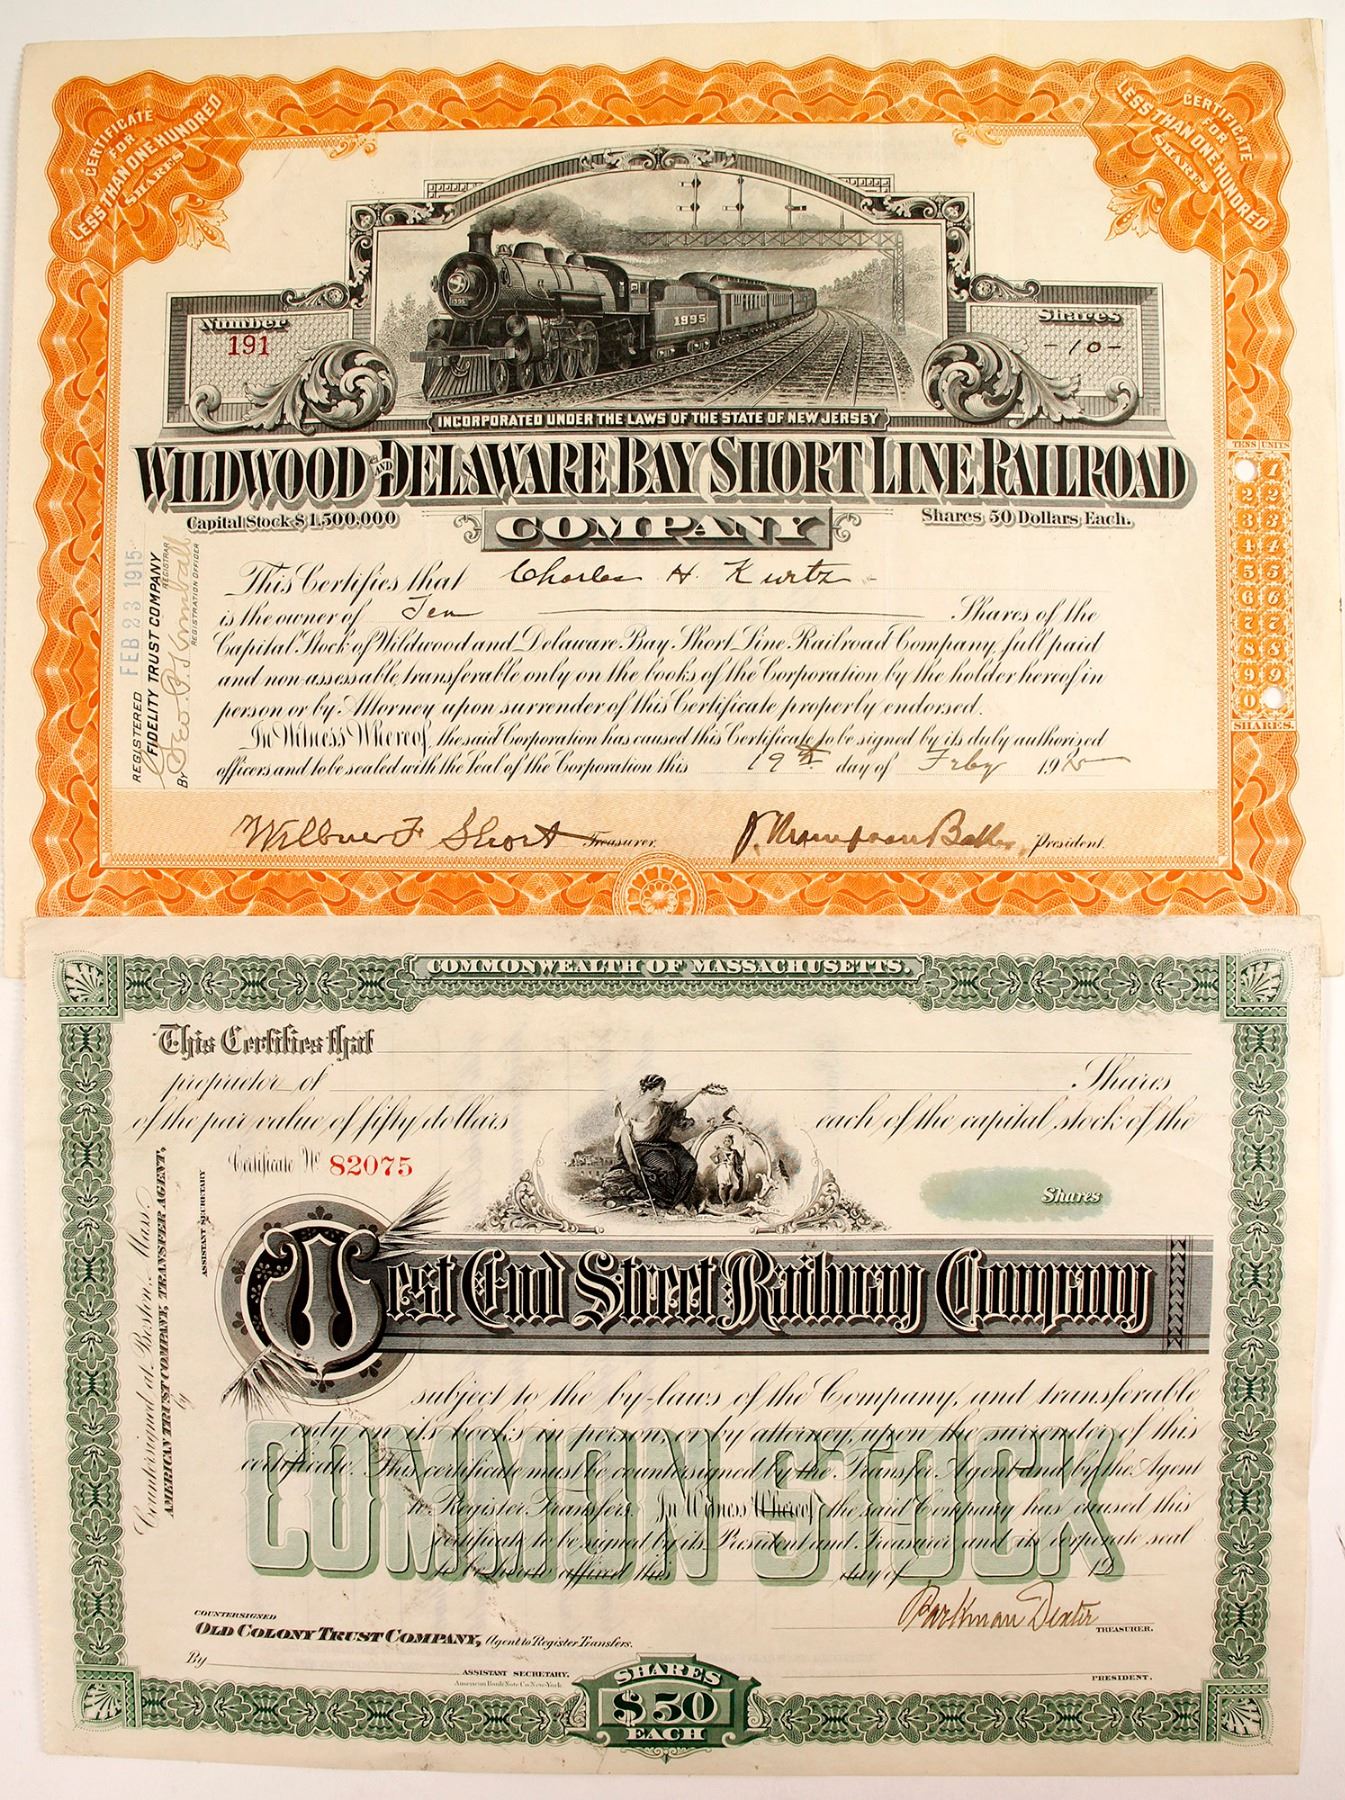 CERTIFICATE
FOR
LESS THAN ONE HUNDRED
SHARES
CERTIFICATE
FOR
LESS THAN ONE HUNDRED
SHARES
1395
1895
Number
191
Shares
-10-
INCORPORATED UNDER THE LAWS OF THE STATE OF NEW JERSEY
WILDWOOD AND DELAWARE BAY SHORT LINE RAILROAD
Capital Stock $1,500,000
COMPANY
Shares, 50 Dollars Each.
This Certifies that Charles H. Kurtz
is the owner of Ten Shares of the
Capital Stock of Wildwood and Delaware Bay Short Line Railroad Company, full paid
and non-assessable, transferable only on the books of the Corporation by the holder hereof in
person or by Attorney upon surrender of this Certificate properly endorsed.
In Witness Whereof, the said Corporation has caused this Certificate to be signed by its duly authorized
officers and to be sealed with the Seal of the Corporation this 19th day of Feby 1915
Wilbur F Short Treasurer.
J. Thompson Baker, President.
REGISTERED FEB 23 1915
FIDELITY TRUST COMPANY
REGISTRAR
BY Geo. P. Kimball
REGISTRATION OFFICER
TENS UNITS
1
2 2
3 3
4 4
5 5
6 6
7 7
8 8
9 9
0
SHARES.
COMMONWEALTH OF MASSACHUSETTS.
This Certifies that
proprietor of Shares
of the par value of fifty dollars each, of the capital stock of the
Certificate No 82075
Shares
West End Street Railway Company
subject to the by-laws of the Company, and transferable
only on its books in person, or by attorney, upon the surrender of this
certificate. This certificate must be countersigned by the Transfer Agent and by the Agent
to Register Transfers. In Witness Whereof, the said Company has caused this
certificate to be signed by its President and Treasurer and its corporate seal
to be hereto affixed this day of 19
COMMON STOCK
Parkman Dexter TREASURER.
COUNTERSIGNED
OLD COLONY TRUST COMPANY, Agent to Register Transfers.
By
ASSISTANT SECRETARY.
PRESIDENT.
American Bank Note Co. New York.
SHARES
$50
EACH
Countersigned at Boston, Mass.
AMERICAN TRUST COMPANY, TRANSFER AGENT,
by
ASSISTANT SECRETARY